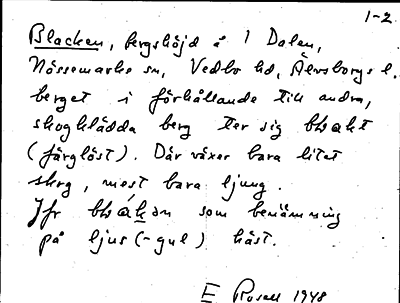 1-2
Blacken, bergshöjd å 1 Dalen,
Nössemarks sn, Vedbo hd, Älvsborgs l.
berget i förhållande till andra,
skogklädda berg ter sig
(färglöst). Där växer bara litet
skog, mest bara ljung.
Jfr som benämning
på ljus (-gul) häst.
E Rosell 1948